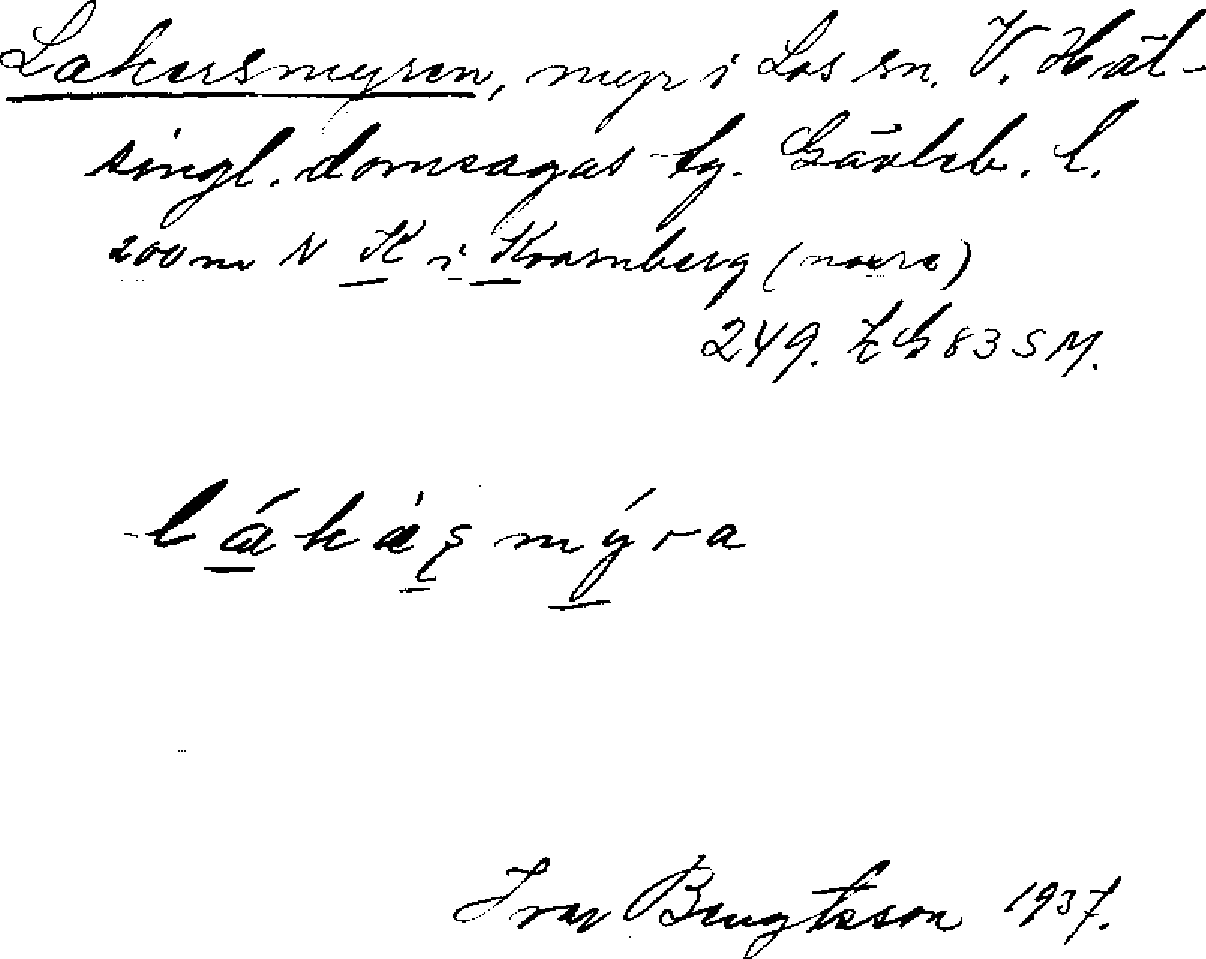 Lakersmyren, myr i Los sn. V. Häl-
singl. domsagas tg. Gävleb. l.
200 m N K i Kvarnberg (norra)
249. 83 SM.
lákàşmýra
Ivar Bengtsson 1937.